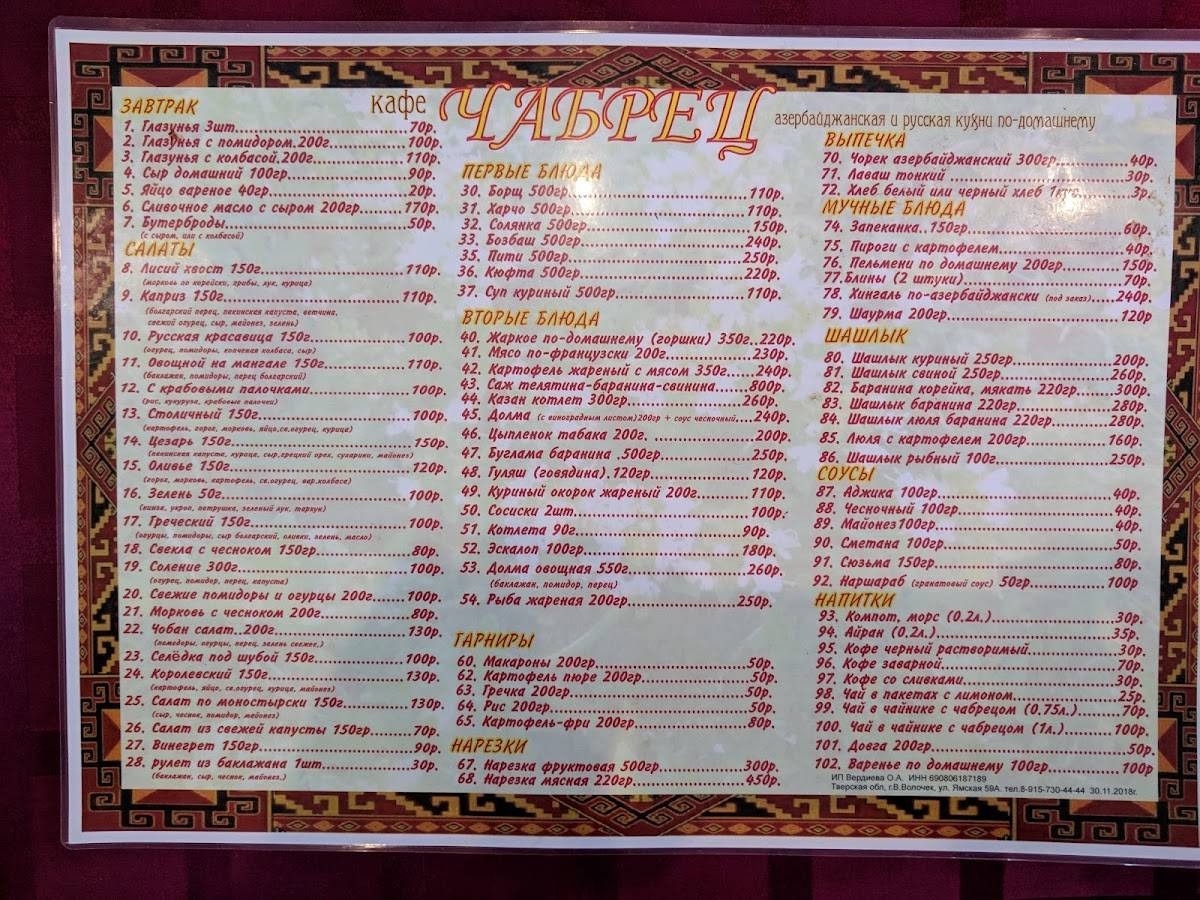 кафе ЧАБРЕЦ
азербайджанская и русская кухни по-домашнему
ЗАВТРАК
1. Глазунья 3шт.....70р.
2. Глазунья с помидором.200г.....100р.
3. Глазунья с колбасой.200г.....110р.
4. Сыр домашний 100гр.....90р.
5. Яйцо вареное 40гр.....20р.
6. Сливочное масло с сыром 200гр.....170р.
7. Бутерброды.....50р.
(с сыром, или с колбасой)
САЛАТЫ
8. Лисий хвост 150г.....110р.
(морковь по корейски, грибы, лук, курица)
9. Каприз 150г.....110р.
(болгарский перец, пекинская капуста, ветчина,
свежий огурец, сыр, майонез, зелень)
10. Русская красавица 150г.....100р.
(огурец, помидоры, копченая колбаса, сыр)
11. Овощной на мангале 150г.....110р.
(баклажан, помидоры, перец болгарский)
12. С крабовыми палочками.....100р.
(рис, кукуруза, крабовые палочки)
13. Столичный 150г.....100р.
(картофель, горох, морковь, яйцо,св.огурец, курица)
14. Цезарь 150г.....150р.
(пекинская капуста, курица, сыр,грецкий орех, сухарики, майонез)
15. Оливье 150г.....120р.
(горох, морковь, картофель, св.огурец, вар.колбаса)
16. Зелень 50г.....100р.
(кинза, укроп, петрушка, зеленый лук, тархун)
17. Греческий 150г.....100р.
(огурцы, помидоры, сыр болгарский, оливки, зелень, масло)
18. Свекла с чесноком 150гр.....80р.
19. Соление 300г.....100р.
(огурец, помидор, перец, капуста)
20. Свежие помидоры и огурцы 200г.....100р.
21. Морковь с чесноком 200г.....80р.
22. Чобан салат..200г.....130р.
(помедоры, огурцы, перец, зелень свежие,)
23. Селёдка под шубой 150г.....100р.
24. Королевский 150г.....130р.
(картофель, яйцо, св.огурец, курица, майонез)
25. Салат по моностырски 150г.....130р.
(сыр, чеснок, помидор, мейонез)
26. Салат из свежей капусты 150гр.....70р.
27. Винегрет 150г.....90р.
28. рулет из баклажана 1шт.....30р.
(баклажан, сыр, чеснок, майонез.)
ПЕРВЫЕ БЛЮДА
30. Борщ 500гр.....110р.
31. Харчо 500гр.....110р.
32. Солянка 500гр.....150р.
33. Бозбаш 500гр.....240р.
35. Пити 500гр.....250р.
36. Кюфта 500гр.....220р.
37. Суп куриный 500гр.....110р.
ВТОРЫЕ БЛЮДА
40. Жаркое по-домашнему (горшки) 350г..220р.
41. Мясо по-французски 200г.....230р.
42. Картофель жареный с мясом 350г.....240р.
43. Саж телятина-баранина-свинина.....800р.
44. Казан котлет 300гр.....260р.
45. Долма (с виноградным листом)200гр + соус чесночный....240р.
46. Цыпленок табака 200г. .....200р.
47. Буглама баранина .500гр.....250р.
48. Гуляш (говядина).120гр.....120р.
49. Куриный окорок жареный 200г.....110р.
50. Сосиски 2шт.....100р.
51. Котлета 90г.....90р.
52. Эскалоп 100гр.....180р.
53. Долма овощная 550г.....260р.
(баклажан, помидор, перец)
54. Рыба жареная 200гр.....250р.
ГАРНИРЫ
60. Макароны 200гр.....50р.
62. Картофель пюре 200гр.....50р.
63. Гречка 200гр.....50р.
64. Рис 200гр.....50р.
65. Картофель-фри 200гр.....80р.
НАРЕЗКИ
67. Нарезка фруктовая 500гр.....300р.
68. Нарезка мясная 220гр.....450р.
ВЫПЕЧКА
70. Чорек азербайджанский 300гр.....40р.
71. Лаваш тонкий .....30р.
72. Хлеб белый или черный хлеб 1кус.....3р.
МУЧНЫЕ БЛЮДА
74. Запеканка..150гр.....60р.
75. Пироги с картофелем.....40р.
76. Пельмени по домашнему 200гр.....150р.
77.Блины (2 штуки).....70р.
78. Хингаль по-азербайджански (под заказ).....240р.
79. Шаурма 200гр.....120р
ШАШЛЫК
80. Шашлык куриный 250гр.....200р.
81. Шашлык свиной 250гр.....260р.
82. Баранина корейка, мякать 220гр.....300р.
83. Шашлык баранина 220гр.....280р.
84. Шашлык люля баранина 220гр.....280р.
85. Люля с картофелем 200гр.....160р.
86. Шашлык рыбный 100г.....250р.
СОУСЫ
87. Аджика 100гр.....40р.
88. Чесночный 100гр.....40р.
89. Майонез100гр.....40р.
90. Сметана 100гр.....50р.
91. Сюзьма 150гр.....80р.
92. Наршараб (гранатовый соус) 50гр.....100р
НАПИТКИ
93. Компот, морс (0.2л.).....30р.
94. Айран (0.2л.).....35р.
95. Кофе черный растворимый.....30р.
96. Кофе заварной.....70р.
97. Кофе со сливками.....30р.
98. Чай в пакетах с лимоном.....25р.
99. Чай в чайнике с чабрецом (0.75л.).....70р.
100. Чай в чайнике с чабрецом (1л.).....100р.
101. Довга 200гр.....50р.
102. Варенье по домашнему 100гр.....100р
ИП Вердиева О.А. ИНН 690806187189
Тверская обл, г.В.Волочек, ул. Ямская 59А. тел.8-915-730-44-44 30.11.2018г.